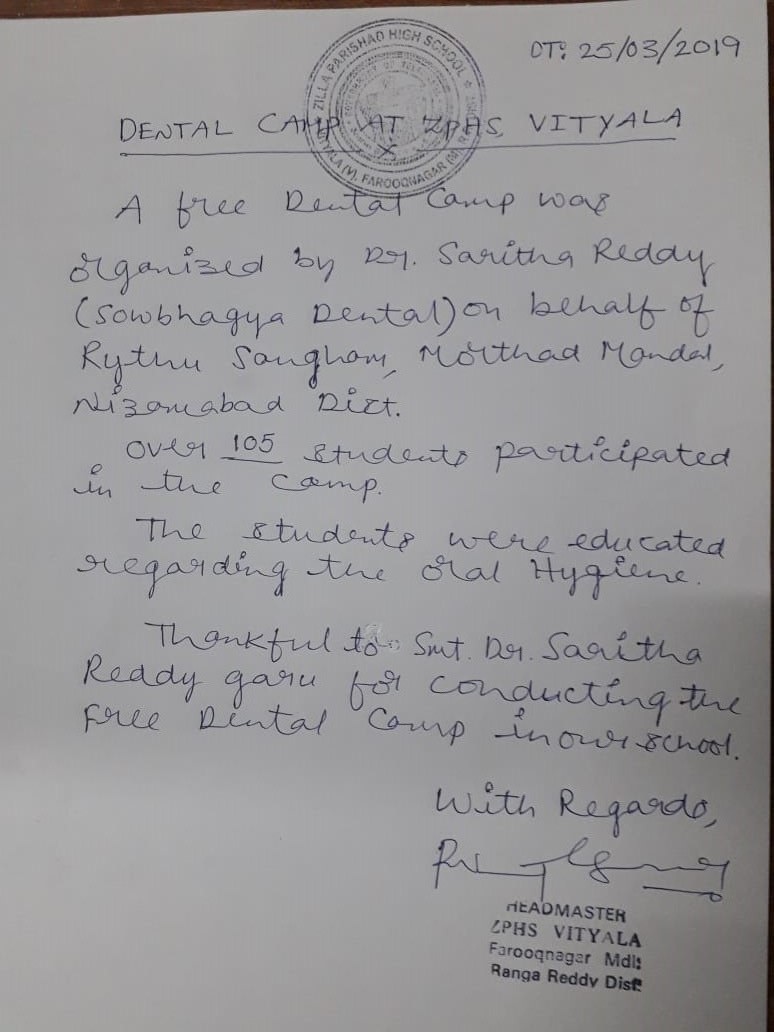 ZILLA PARISHAD HIGH SCHOOL
VITYALA (V), FAROOQNAGAR (M)
DT: 25/03/2019
DENTAL CAMP AT ZPHS, VITYALA
A free Dental Camp was
organized by Dr. Saritha Reddy
(Sowbhagya Dental) on behalf of
Rythu Sangham, Morthad Mandal,
Nizamabad Dist.
Over 105 students participated
in the camp.
The students were educated
regarding the oral Hygiene.
Thankful to Smt. Dr. Saritha
Reddy garu for conducting the
Free Dental Camp in our school.
With Regards,
HEADMASTER
ZPHS VITYALA
Farooqnagar Mdl:
Ranga Reddy Dist: